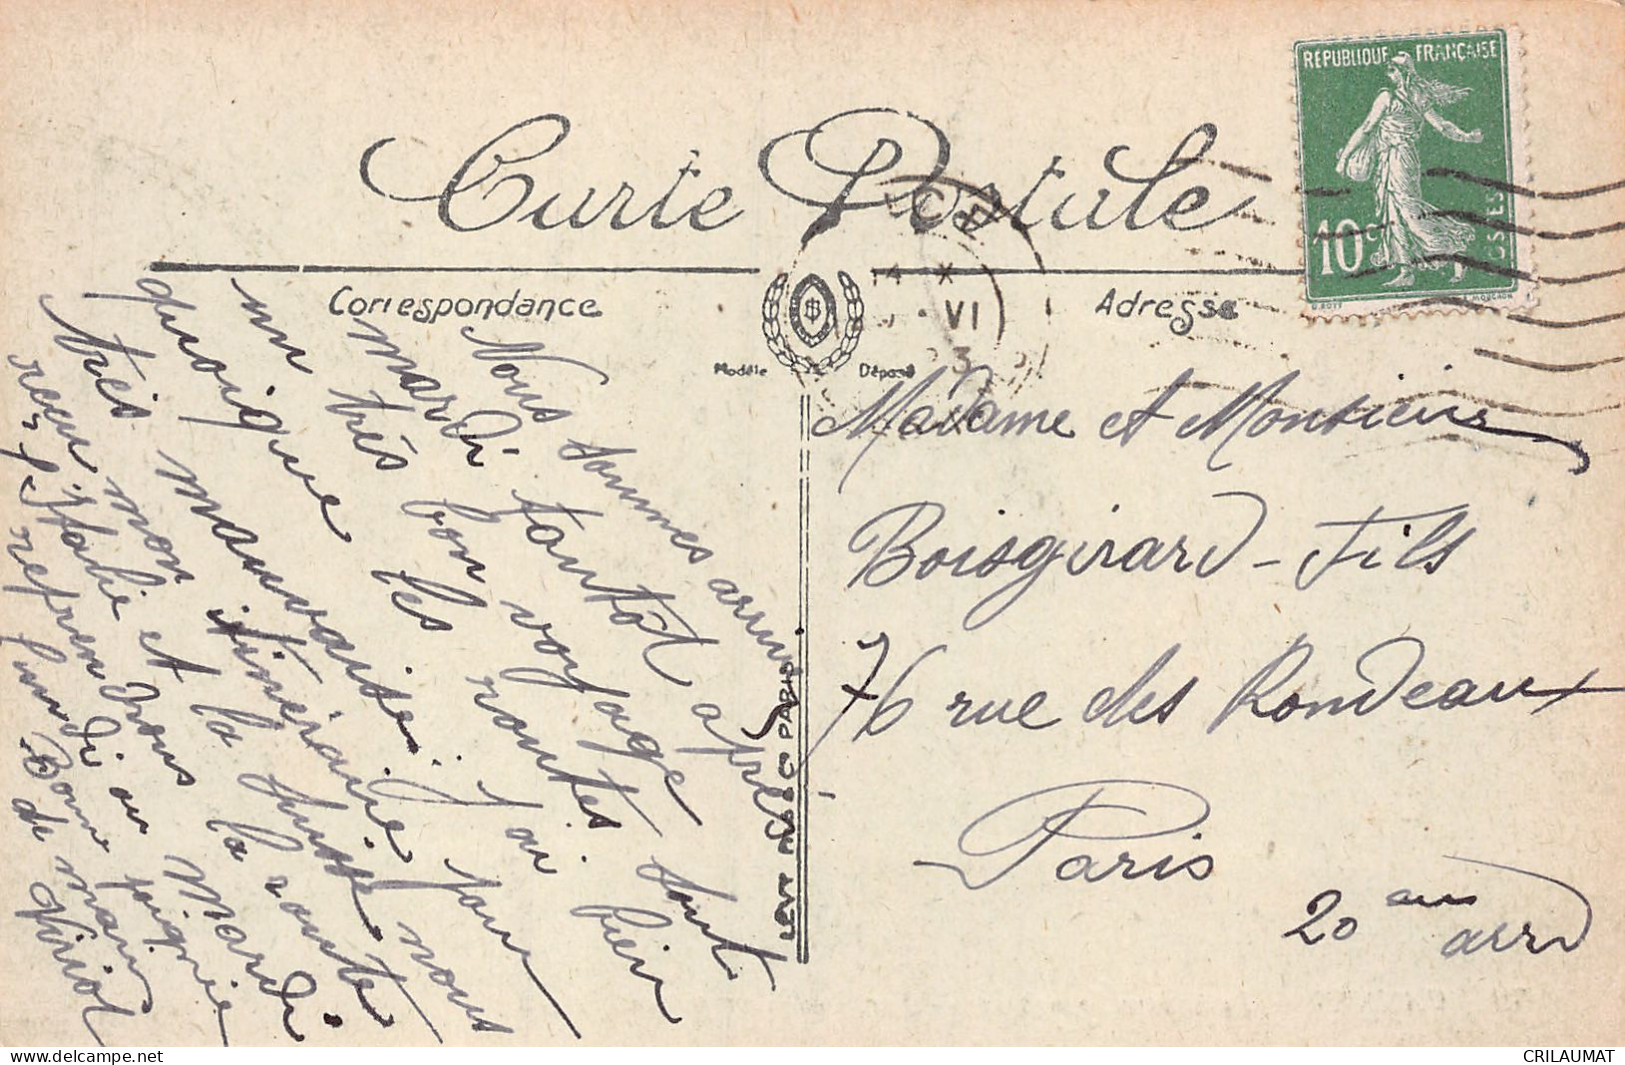 RÉPUBLIQUE FRANÇAISE
10c
POSTES
Carte Postale
Correspondance
Adresse
Modèle Déposé
14 X
VI
23
LEVY ET NEURDEIN PARIS
Nous sommes arrivés
mardi tantôt après
un très bon voyage
quoique les routes sont
très mauvaises. J'ai bien
reçu mon itinéraire pour
l'Italie et la Suisse. nous
reprendrons la route
lundi ou Mardi
Bonne poignée
de main
Viriot
Madame et Monsieur
Boisgirard-Fils
76 rue des Rondeaux
Paris
20 arrd
www.delcampe.net
CRILAUMAT